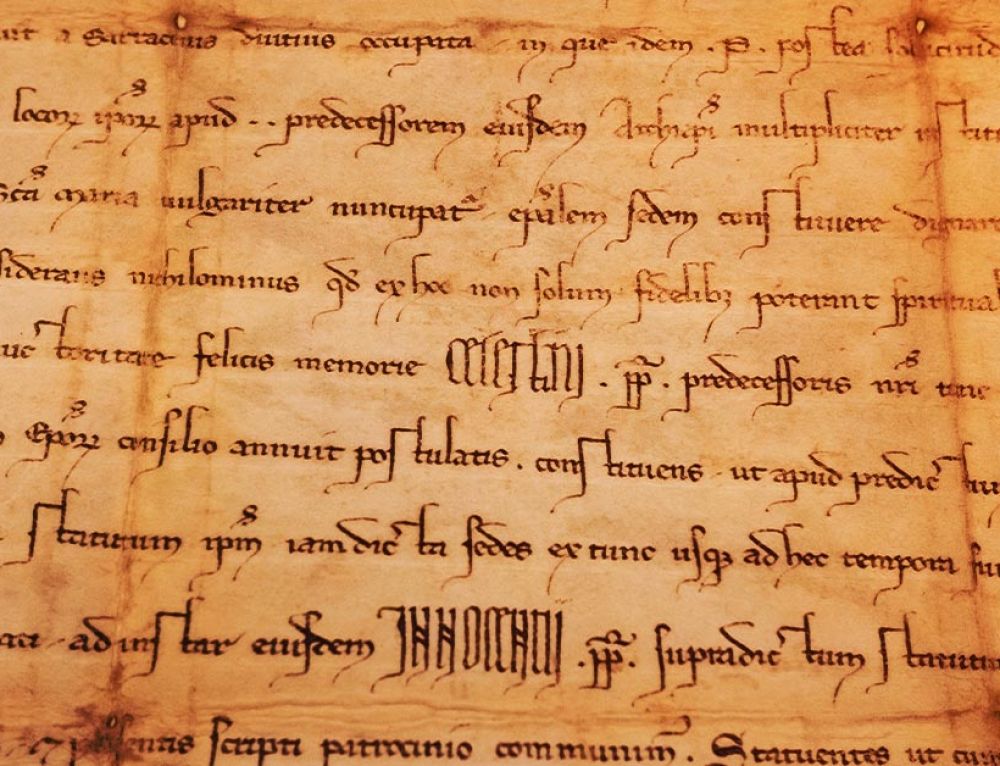 a Sarracenis diutius occupata in que idem . P . postea
locoꝝ ipoꝝ apud .. predecessorem eiusdem Archiepi multipliciter
Sca Maria uulgariter nuncupat epalem sedem constituere dignare
siderans nichilominus qd ex hoc non solum fidelibꝫ poterint spiritual
uctoritate felicis memorie CELESTINI . pp . predecessoris nri tunc
Epoꝝ consilio annuit postulatis . constituens ut apud predictu
statutum ipm iamdicta sedes ex tunc usqꝫ ad hec tempora
ad instar eiusdem INNOCENTII . pp . supradictum statutu
scripti patrocinio communim . Statuentes ut